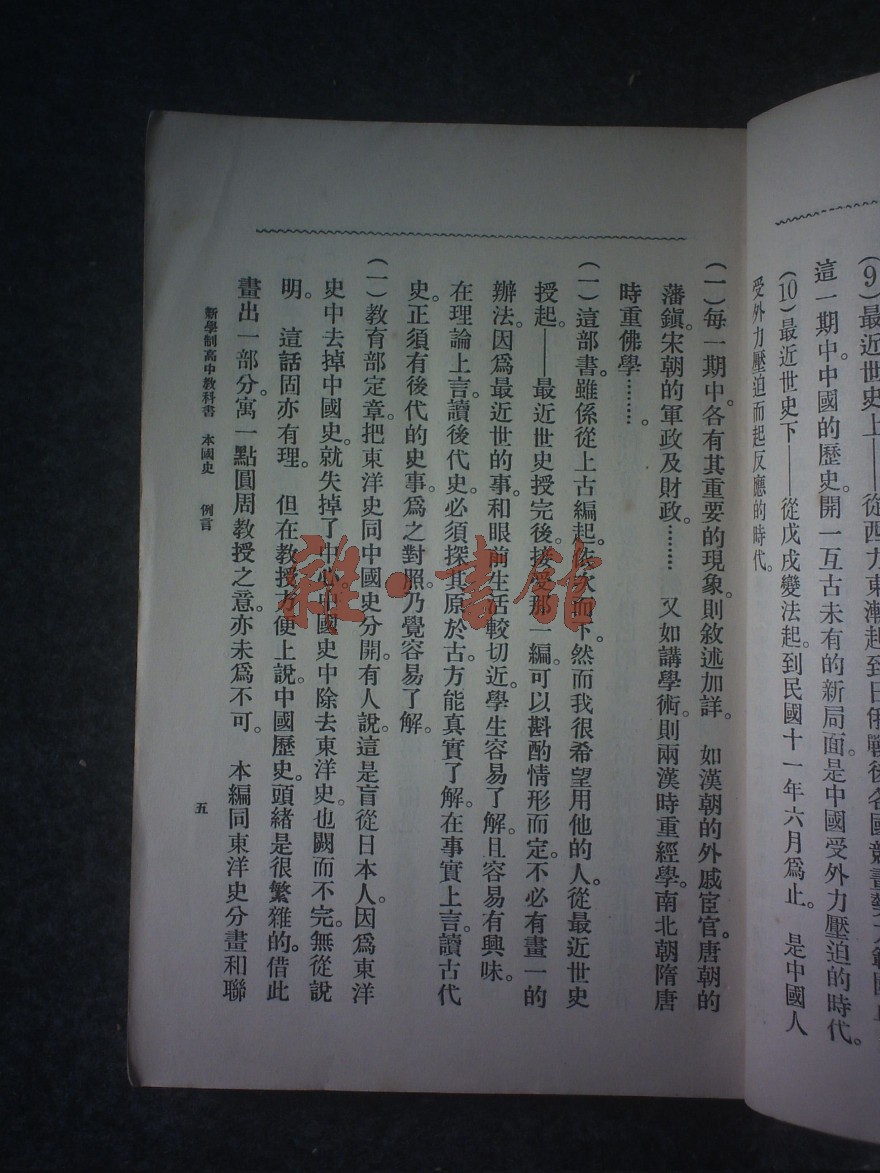 (9)最近世史上——從西力東漸起到日俄戰後各國競畫勢力範圍
這一期中中國的歷史。開一亙古未有的新局面。是中國受外力壓迫的時代。
(10)最近世史下——從戊戌變法起。到民國十一年六月爲止。 是中國人
受外力壓迫而起反應的時代。
(一)每一期中。各有其重要的現象。則敘述加詳。 如漢朝的外戚宦官。唐朝的
藩鎮。宋朝的軍政及財政。……… 又如講學術。則兩漢時重經學。南北朝隋唐
時重佛學………
(一)這部書。雖係從上古編起。依次而下。然而我很希望用他的人。從最近世史
授起。——最近世史授完後。接受那一編。可以斟酌情形而定。不必有畫一的
辦法。因爲最近世的事。和眼前生活較切近。學生容易了解。且容易有興味。
在理論上言。讀後代史。必須探其原於古。方能真實了解。在事實上言。讀古代
史。正須有後代的史事。爲之對照。乃覺容易了解。
(一)教育部定章。把東洋史同中國史分開。有人說。這是盲從日本人。因爲東洋
史中去掉中國史。就失掉了中心。中國史中除去東洋史。也闕而不完。無從說
明。 這話固亦有理。 但在教授方便上說。中國歷史。頭緒是很繁雜的。借此
畫出一部分。寓一點圓周教授之意。亦未爲不可。 本編同東洋史分畫和聯
新學制高中教科書 本國史 例言
五
雜·書館